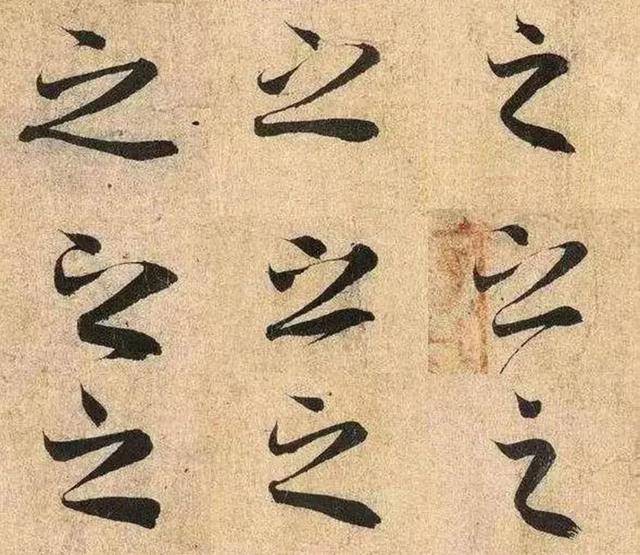 之之之
之之之
之之之